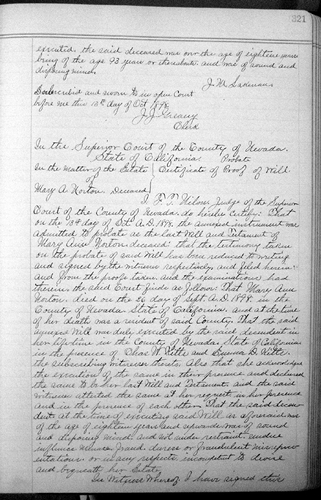 321
executed the said deceased was over the age of eighteen years
being of the age 93 years or thereabouts and was of sound and
disposing mind.
Subscribed and sworn to in open Court
before me this day of Oct 1898
Clerk
In the Superior Court of the County of Nevada,
State of California. Probate
In the Matter of the Estate Certificate of Proof of Will
of
Mary A. Norton Deceased
I, F. T. Nilon, Judge of the Superior
Court of the County of Nevada, do hereby certify: That
on the day of Oct A.D. 1898, the annexed instrument was
admitted to probate as the Last Will and Testament of
Mary Ann Norton deceased that the testimony taken
on the probate of said Will has been reduced to writing
and signed by the witness respectively, and filed herein:
and from the proofs taken and the examinations had
therein the said Court finds as follows: That Mary Ann
Norton died on the day of Sept A.D. 1898 in the
County of Nevada State of California, and at the time
of her death was a resident of said County. That the said
annexed Will was duly executed by the said decedent in
her lifetime in the County of Nevada, State of California
in the presence of Chas. W. and
the subscribing witnesses thereto. Also that she acknowledged
the execution of the same in their presence and declared
the same to be her Last Will and Testament and the said
witnesses attested the same at her request in her presence
and in the presence of each other. That the said decedent
at the time of executing said Will as aforesaid was
of the age of eighteen years and upwards was of sound
and disposing mind, and not under restraint undue
influence menace fraud, duress or fraudulent misrepresen
tations or in any respects incompetent to devise
and bequeath her Estate.
In Witness Whereof I have signed this